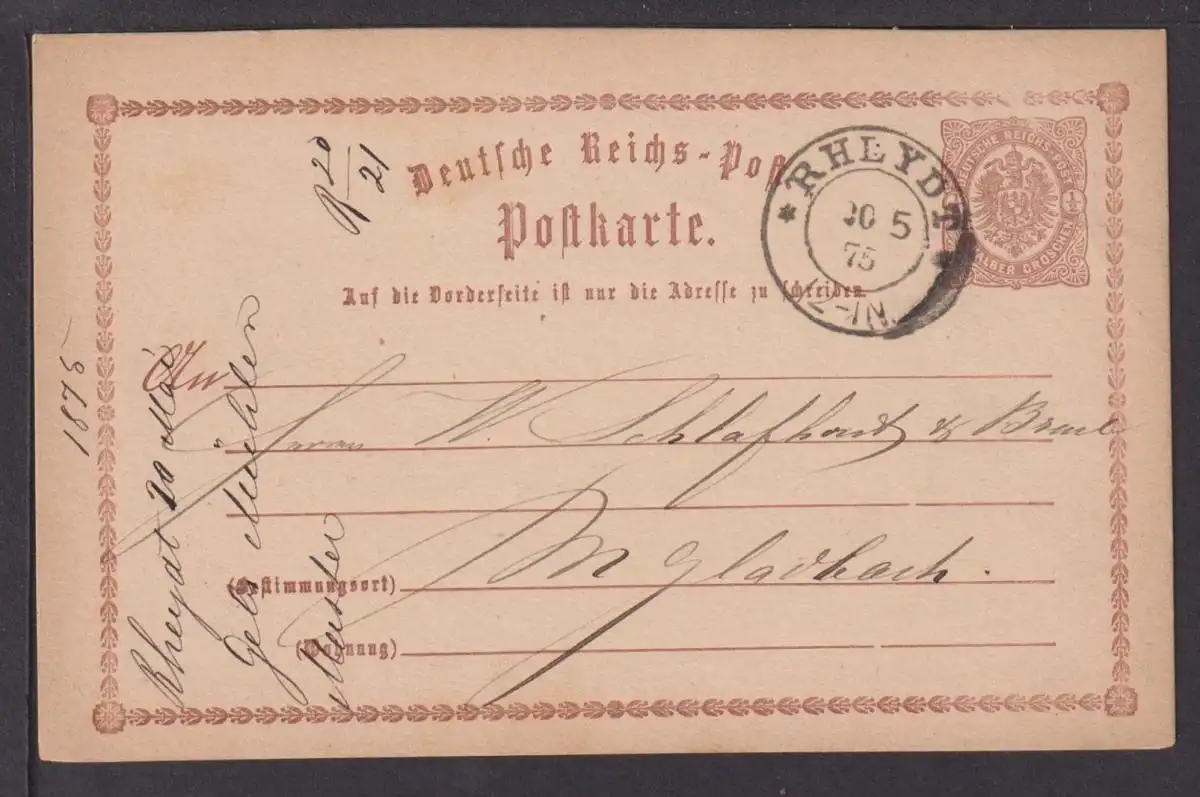 Deutsche Reichs-Post
Postkarte.
Auf die Vorderseite ist nur die Adresse zu schreiben.
DEUTSCHE REICHS-POST
½
HALBER GROSCHEN
* RHEYDT *
20 5
75
R 20/21
An
Herren W Schlafhorst & Bruel
M Gladbach.
(Bestimmungsort)
(Wohnung)
1875
Rheydt 20 Mai
Gebr Mühlen
Muster